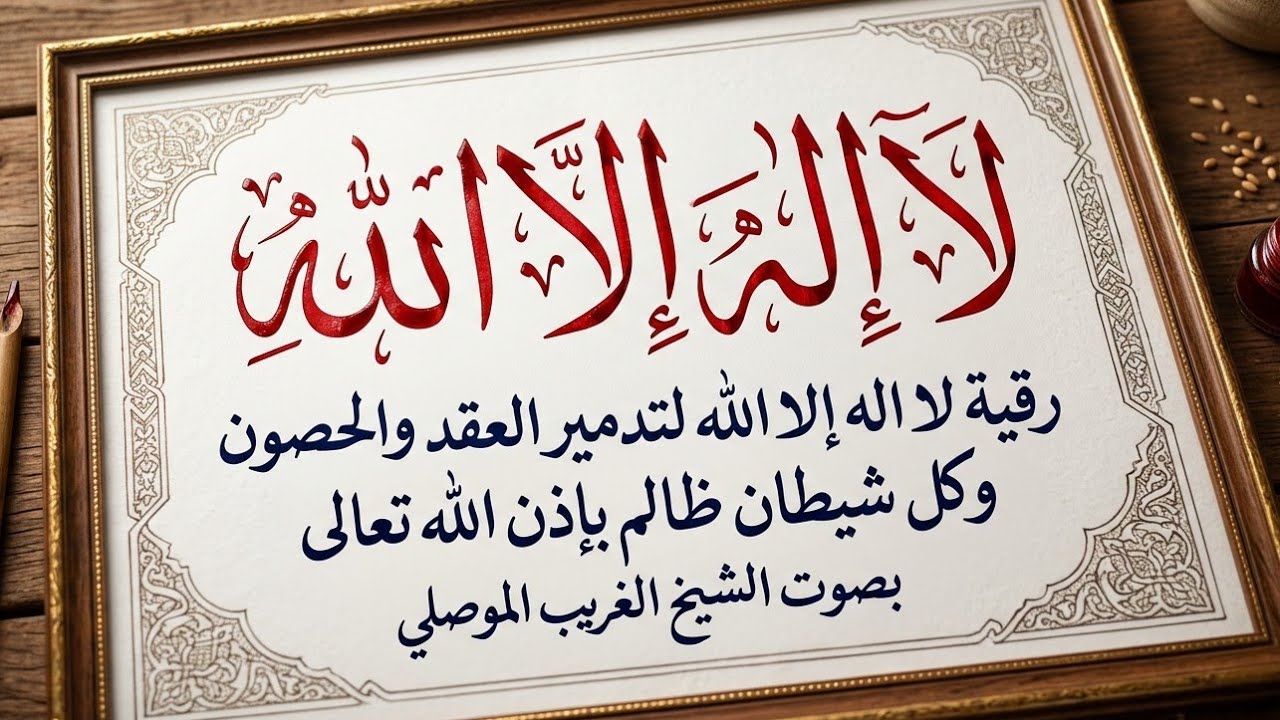 لَآ إِلَٰهَ إِلَّا اللّٰهِ
رقية لا اله إلا الله لتدمير العقد والحصون
وكل شيطان ظالم بإذن الله تعالى
بصوت الشيخ الغريب الموصلي